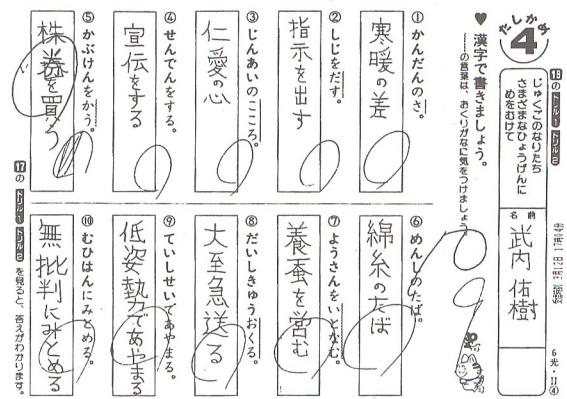 たしかめ
4
18の ドリル1 ドリル2
じゅくごのなりたち
さまざまなひょうげんに
めをむけて
名前
武内 佑樹
6光・11④
♥ 漢字で書きましょう。
の言葉は、おくりがなに気をつけましょう。
① かんだんのさ。
寒暖の差
② しじをだす。
指示を出す
③ じんあいのこころ。
仁愛の心
④ せんでんをする。
宣伝をする
⑤ かぶけんをかう。
株券を買う
⑥ めんしのたば。
綿糸のたば
⑦ ようさんをいとなむ。
養蚕を営む
⑧ だいしきゅうおくる。
大至急送る
⑨ ていしせいであやまる。
低姿勢であやまる
⑩ むひはんにみとめる。
無批判にみとめる
17の ドリル1 ドリル2 を見ると、答えがわかります。